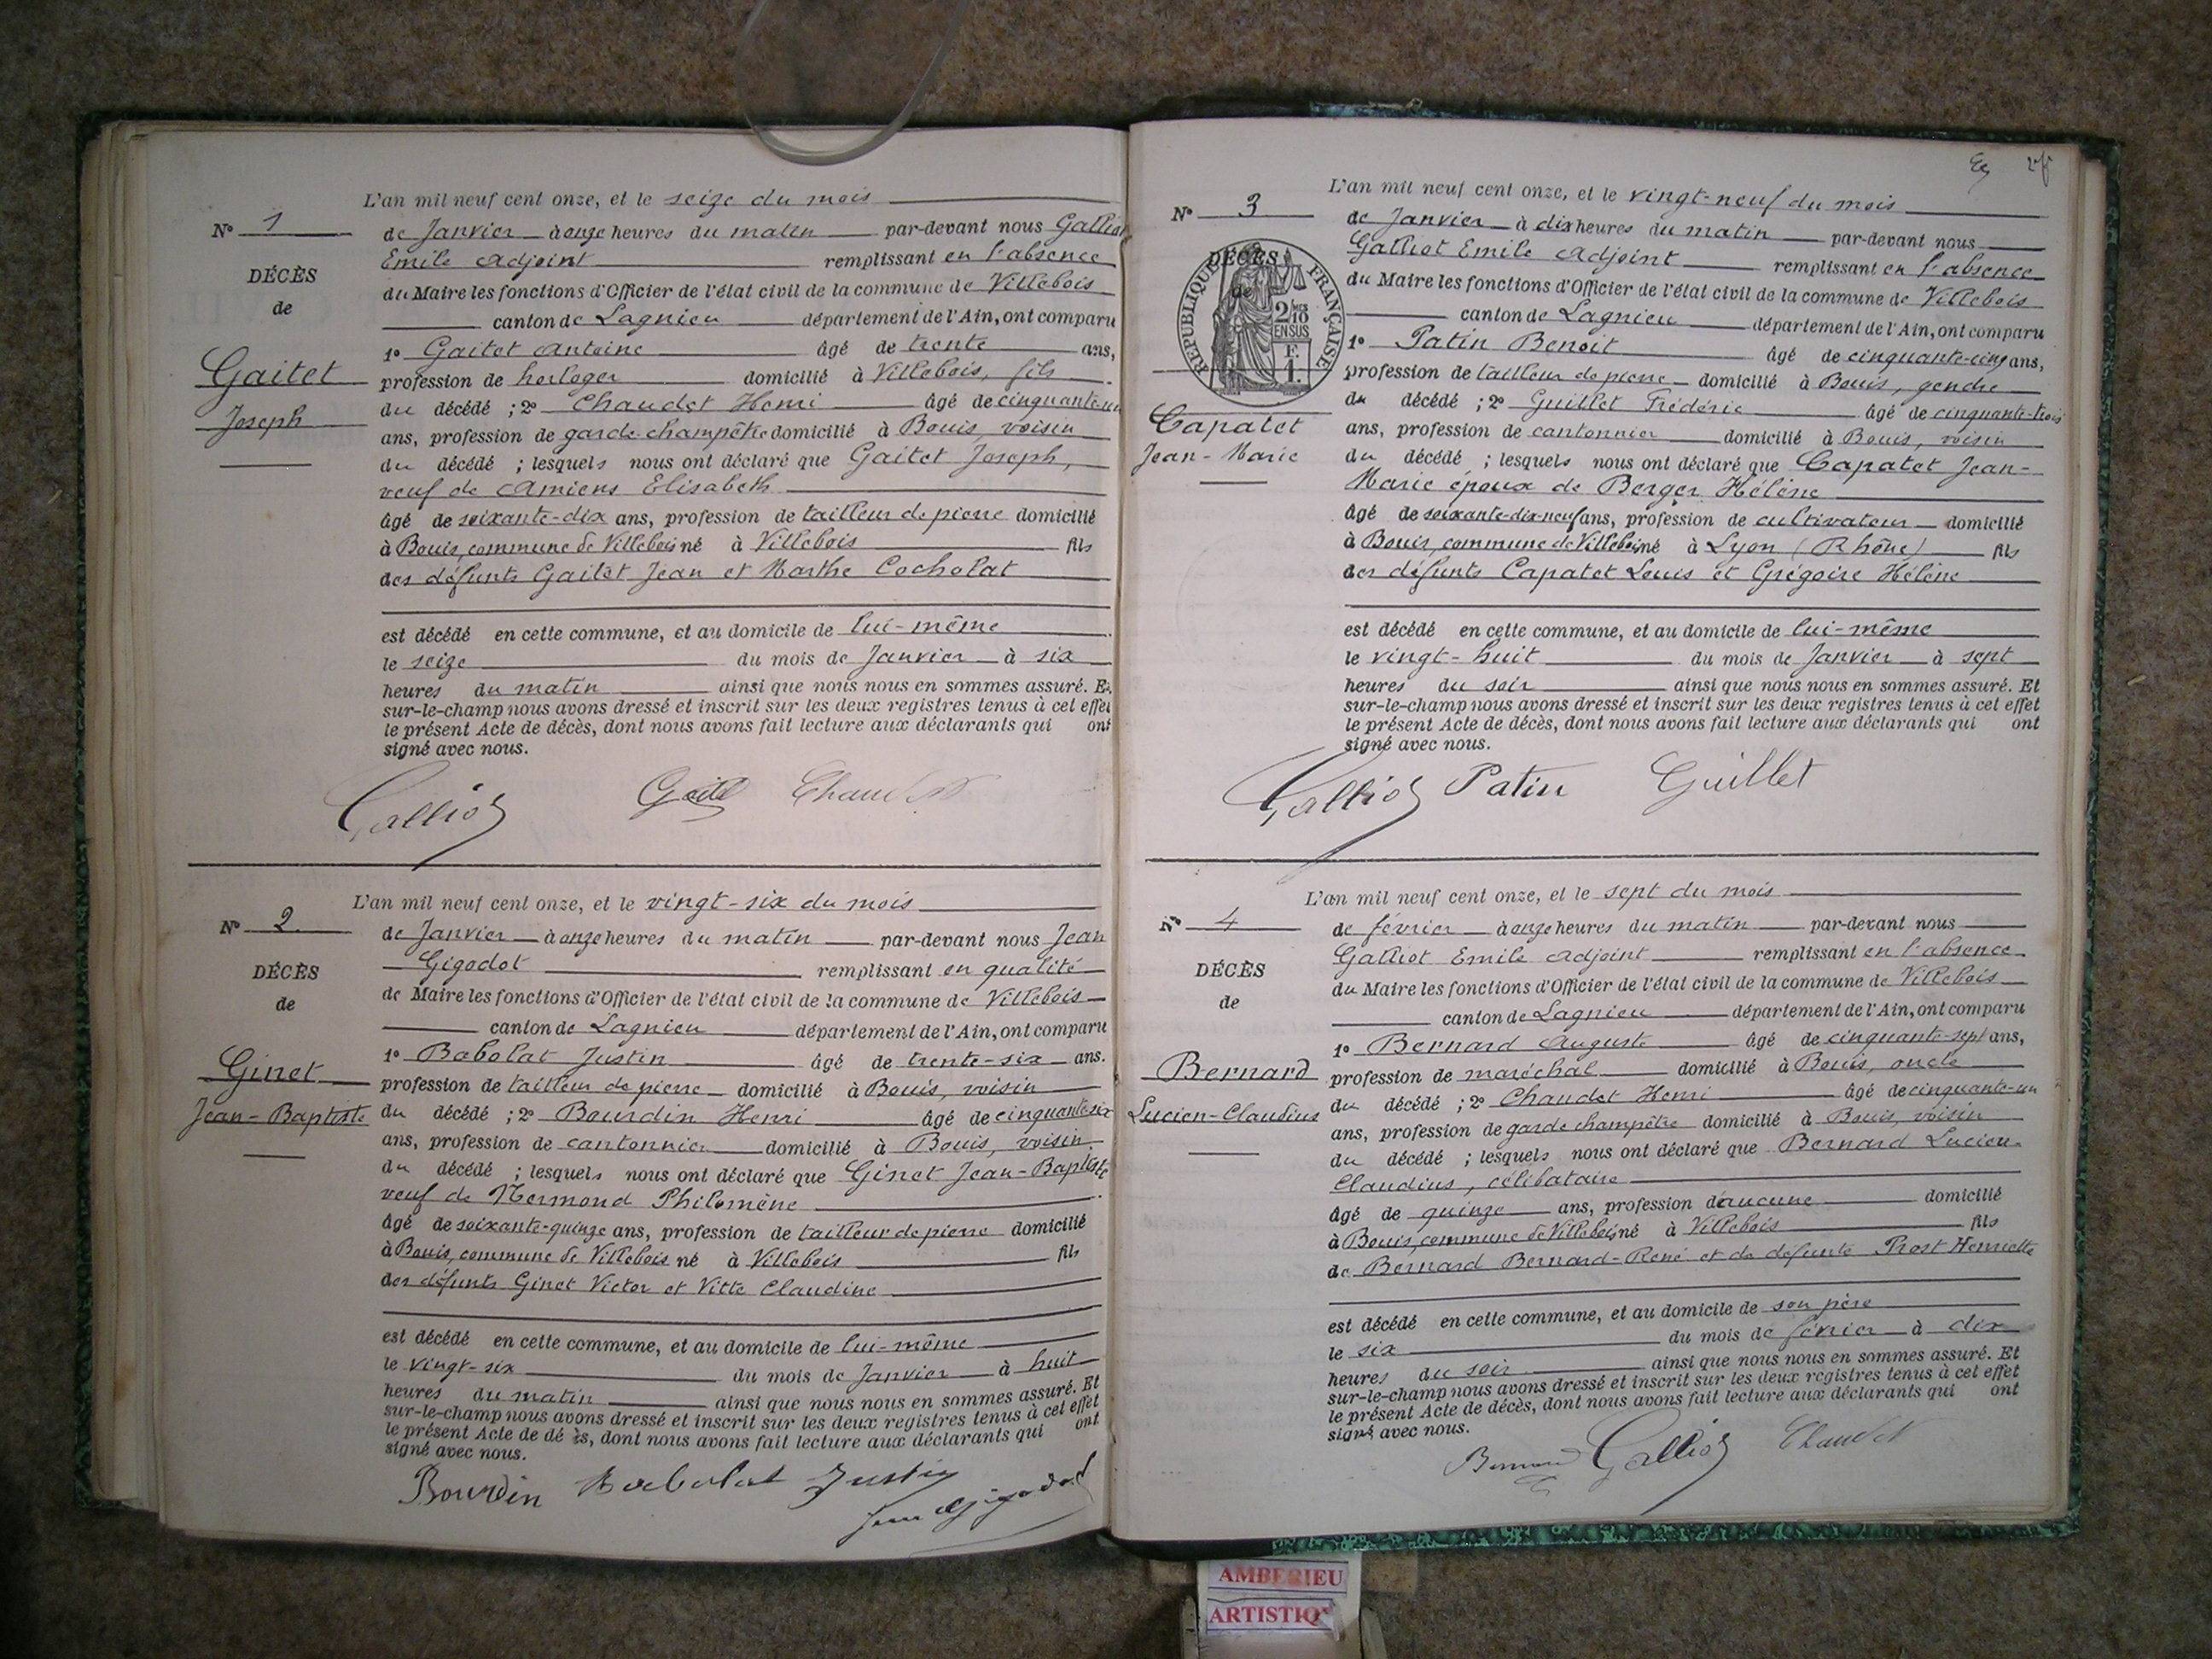 L'an mil neuf cent onze, et le seize du mois
N° 1
de Janvier à onze heures du matin par-devant nous Galliot
Emile Adjoint remplissant en l'absence
DÉCÈS
du Maire les fonctions d'Officier de l'état civil de la commune de Villebois
de
canton de Lagnieu département de l'Ain, ont comparu
1° Gaitet Antoine âgé de trente ans,
Gaitet
profession de horloger domicilié à Villebois, fils
du décédé ; 2° Chaudet Henri âgé de cinquante-un
Joseph
ans, profession de garde-champêtre domicilié à Bouis, voisin
du décédé ; lesquels nous ont déclaré que Gaitet Joseph,
veuf de Amiens Elisabeth
âgé de soixante-dix ans, profession de tailleur de pierre domicilié
à Bouis, commune de Villebois né à Villebois fils
des défunts Gaitet Jean et Marthe Cocholat
est décédé en cette commune, et au domicile de lui-même
le seize du mois de Janvier à six
heures du matin ainsi que nous nous en sommes assuré. Et
sur-le-champ nous avons dressé et inscrit sur les deux registres tenus à cet effet
le présent Acte de décès, dont nous avons fait lecture aux déclarants qui ont
signé avec nous.
Galliot Gaitet Chaudet
L'an mil neuf cent onze, et le vingt-six du mois
N° 2
de Janvier à onze heures du matin par-devant nous Jean
Gigodot remplissant en qualité
DÉCÈS
de Maire les fonctions d'Officier de l'état civil de la commune de Villebois
de
canton de Lagnieu département de l'Ain, ont comparu
1° Babolat Justin âgé de trente-six ans.
Ginet
profession de tailleur de pierre domicilié à Bouis, voisin
Jean-Baptiste
du décédé ; 2° Bourdin Henri âgé de cinquante-six
ans, profession de cantonnier domicilié à Bouis, voisin
du décédé ; lesquels nous ont déclaré que Ginet Jean-Baptiste
veuf de Mermond Philomène
âgé de soixante-quinze ans, profession de tailleur de pierre domicilié
à Bouis, commune de Villebois né à Villebois fils
des défunts Ginet Victor et Vitte Claudine
est décédé en cette commune, et au domicile de lui-même
le vingt-six du mois de Janvier à huit
heures du matin ainsi que nous nous en sommes assuré. Et
sur-le-champ nous avons dressé et inscrit sur les deux registres tenus à cet effet
le présent Acte de dé ès, dont nous avons fait lecture aux déclarants qui ont
signé avec nous.
Bourdin Babolat Justin
Jean Gigodot
L'an mil neuf cent onze, et le vingt-neuf du mois
N° 3
de Janvier à dix heures du matin par-devant nous
Galliot Emile Adjoint remplissant en l'absence
DÉCÈS
de
RÉPUBLIQUE FRANÇAISE
2/10 EN SUS
F. 1.
du Maire les fonctions d'Officier de l'état civil de la commune de Villebois
canton de Lagnieu département de l'Ain, ont comparu
1° Patin Benoit âgé de cinquante-cinq ans,
profession de tailleur de pierre domicilié à Bouis, gendre
du décédé ; 2° Guillet Frédéric âgé de cinquante-trois
Capatet
ans, profession de cantonnier domicilié à Bouis, voisin
Jean-Marie
du décédé ; lesquels nous ont déclaré que Capatet Jean-
Marie époux de Berger Hélène
âgé de soixante-dix-neuf ans, profession de cultivateur domicilié
à Bouis, commune de Villebois né à Lyon (Rhône) fils
des défunts Capatet Louis et Grégoire Hélène
est décédé en cette commune, et au domicile de lui-même
le vingt-huit du mois de Janvier à sept
heures du soir ainsi que nous nous en sommes assuré. Et
sur-le-champ nous avons dressé et inscrit sur les deux registres tenus à cet effet
le présent Acte de décès, dont nous avons fait lecture aux déclarants qui ont
signé avec nous.
Galliot Patin Guillet
L'an mil neuf cent onze, et le sept du mois
N° 4
de février à onze heures du matin par-devant nous
Galliot Emile Adjoint remplissant en l'absence
DÉCÈS
du Maire les fonctions d'Officier de l'état civil de la commune de Villebois
de
canton de Lagnieu département de l'Ain, ont comparu
1° Bernard Auguste âgé de cinquante-sept ans,
Bernard
profession de maréchal domicilié à Bouis, oncle
Lucien-Claudius
du décédé ; 2° Chaudet Henri âgé de cinquante-un
ans, profession de garde champêtre domicilié à Bouis, voisin
du décédé ; lesquels nous ont déclaré que Bernard Lucien-
Claudius, célibataire
âgé de quinze ans, profession d'aucune domicilié
à Bouis, commune de Villebois né à Villebois fils
de Bernard Bernard-René et de défunte Prost Henriette
est décédé en cette commune, et au domicile de son père
le six du mois de février à dix
heures du soir ainsi que nous nous en sommes assuré. Et
sur-le-champ nous avons dressé et inscrit sur les deux registres tenus à cet effet
le présent Acte de décès, dont nous avons fait lecture aux déclarants qui ont
signé avec nous.
Bernard Galliot Chaudet
AMBERIEU
ARTISTIQ